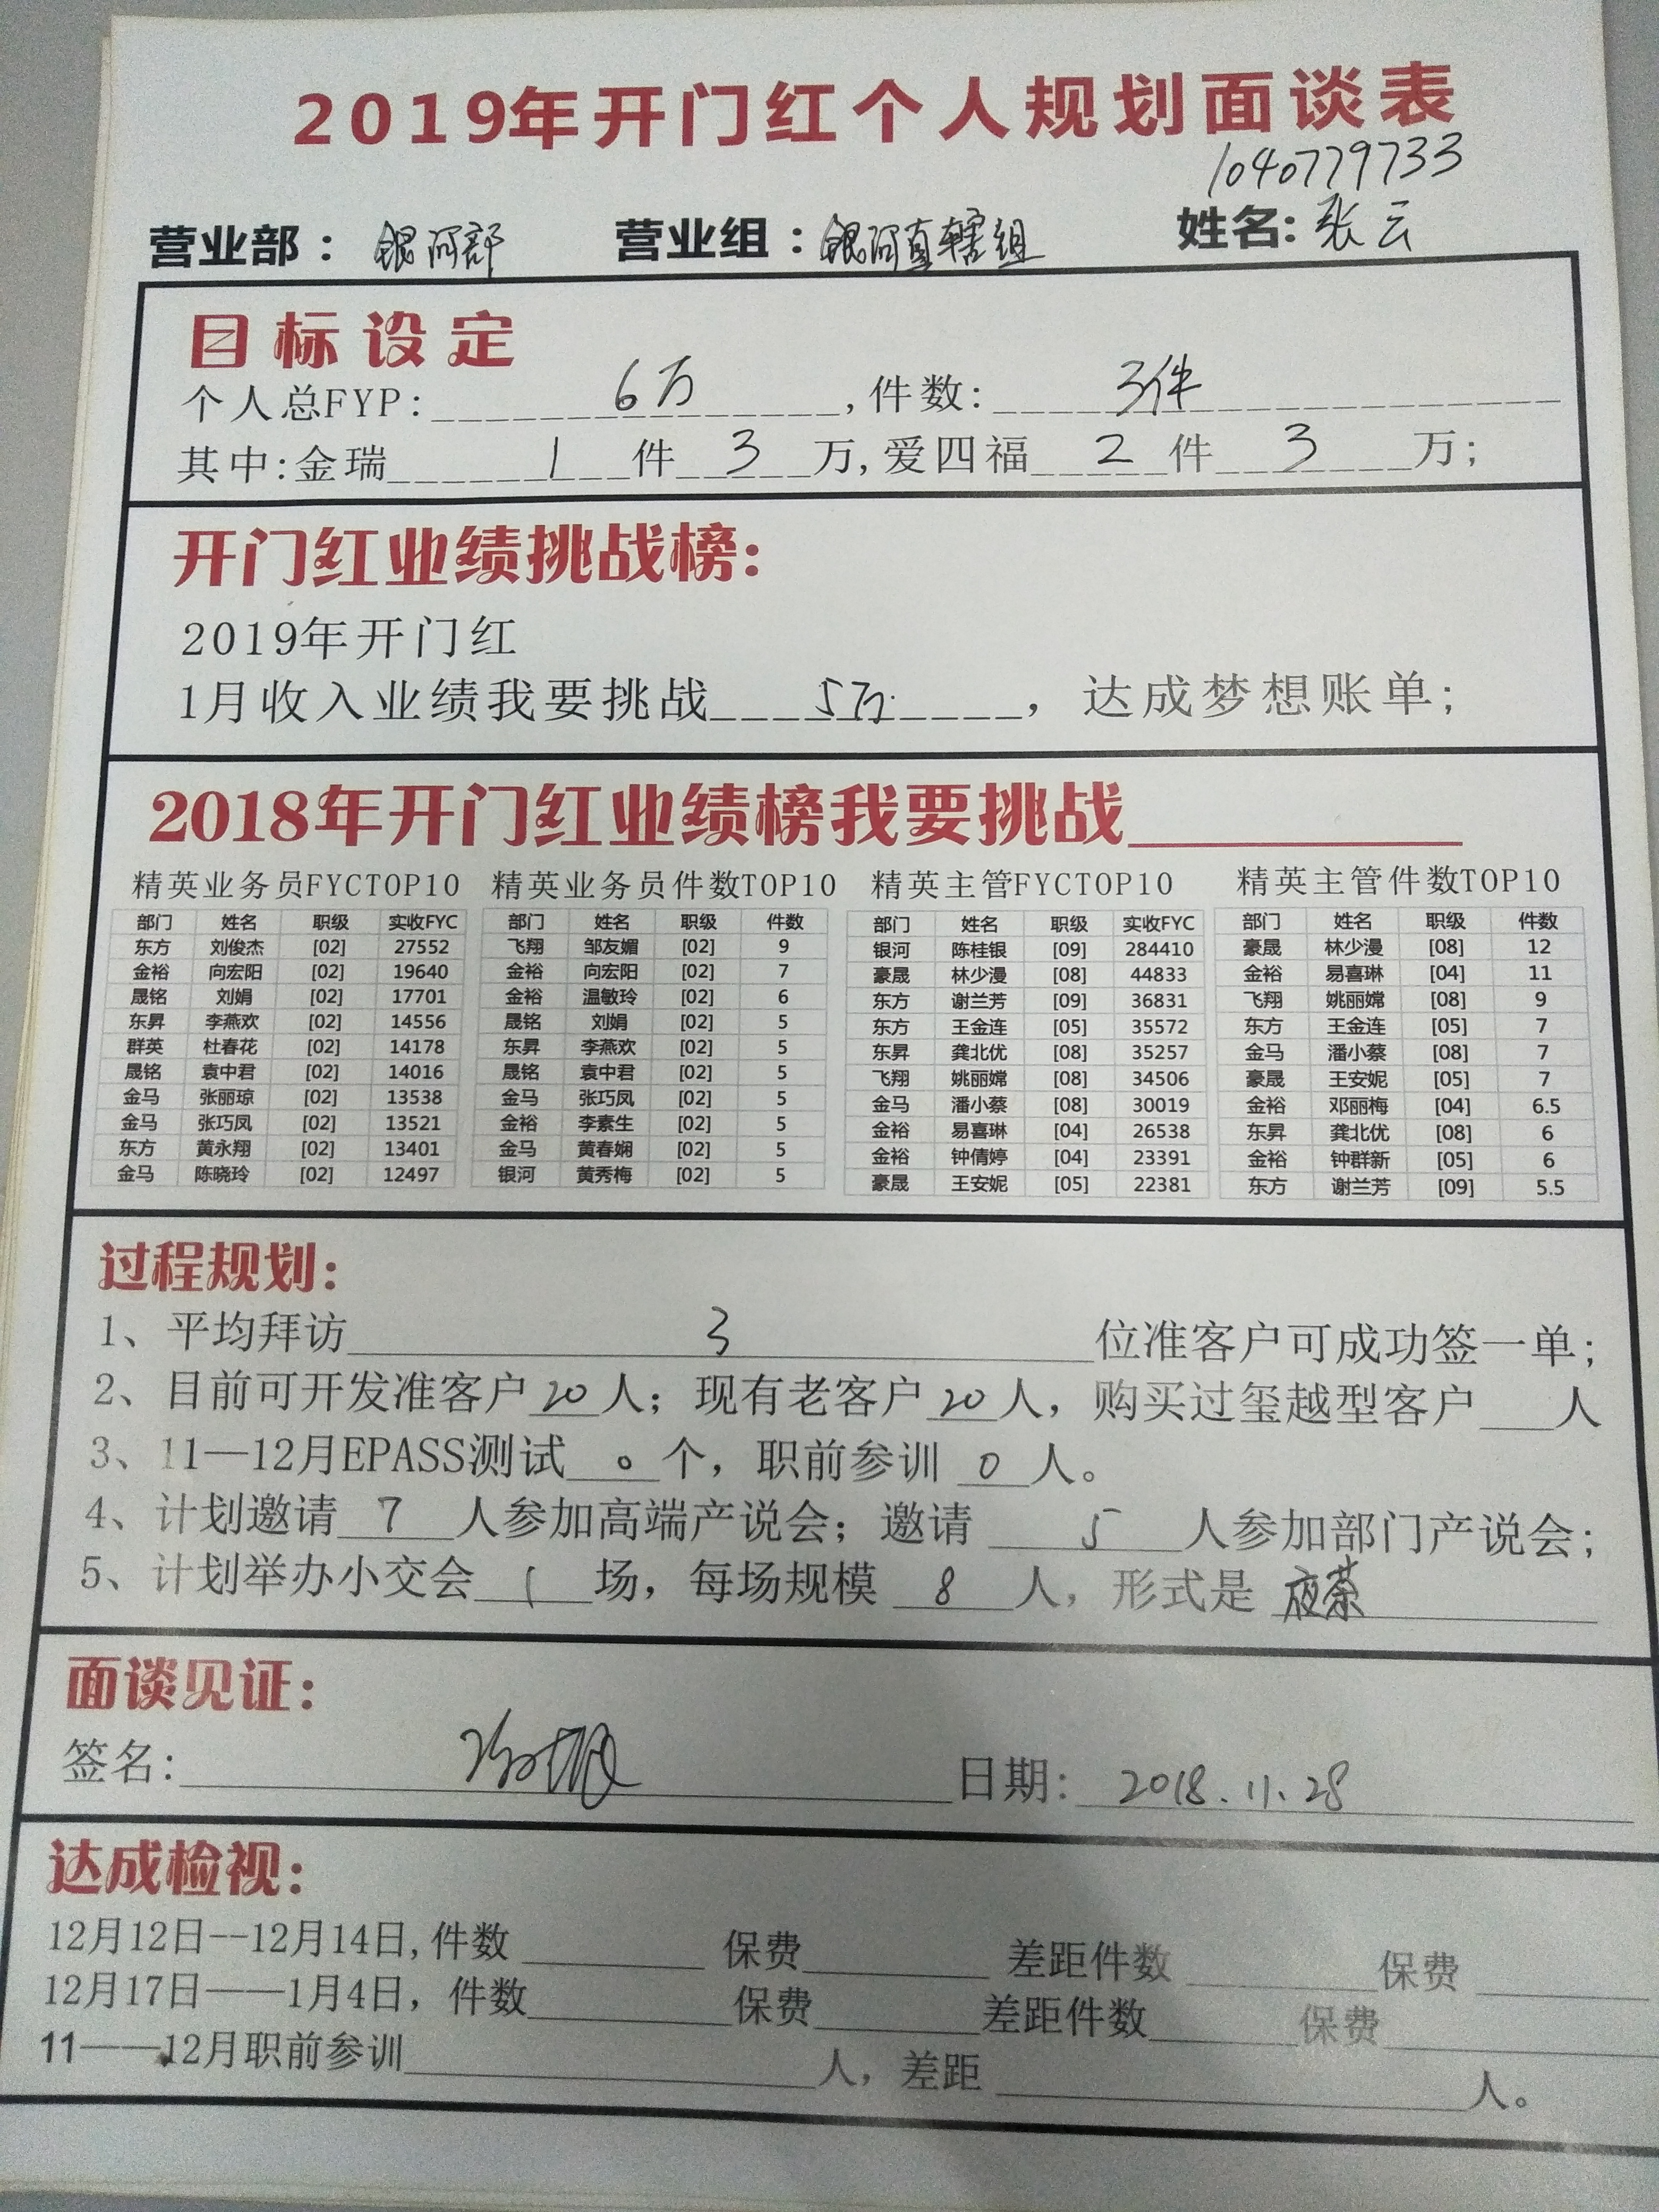 2019年开门红个人规划面谈表
1040779733
营业部：银河部 营业组：银河直辖组 姓名：张云
目标设定
个人总FYP：6万，件数：3件
其中：金瑞 1 件 3 万，爱四福 2 件 3 万；
开门红业绩挑战榜：
2019年开门红
1月收入业绩我要挑战 5万，达成梦想账单；
2018年开门红业绩榜我要挑战
精英业务员FYCTOP10 精英业务员件数TOP10 精英主管FYCTOP10 精英主管件数TOP10
部门 姓名 职级 实收FYC 部门 姓名 职级 件数 部门 姓名 职级 实收FYC 部门 姓名 职级 件数
东方 刘俊杰 [02] 27552 飞翔 邹友媚 [02] 9 银河 陈桂银 [09] 284410 豪晟 林少漫 [08] 12
金裕 向宏阳 [02] 19640 金裕 向宏阳 [02] 7 豪晟 林少漫 [08] 44833 金裕 易喜琳 [04] 11
晟铭 刘娟 [02] 17701 金裕 温敏玲 [02] 6 东方 谢兰芳 [09] 36831 飞翔 姚丽嫦 [08] 9
东昇 李燕欢 [02] 14556 晟铭 刘娟 [02] 5 东方 王金连 [05] 35572 东方 王金连 [05] 7
群英 杜春花 [02] 14178 东昇 李燕欢 [02] 5 东昇 龚北优 [08] 35257 金马 潘小蔡 [08] 7
晟铭 袁中君 [02] 14016 晟铭 袁中君 [02] 5 飞翔 姚丽嫦 [08] 34506 豪晟 王安妮 [05] 7
金马 张丽琼 [02] 13538 金马 张巧凤 [02] 5 金马 潘小蔡 [08] 30019 金裕 邓丽梅 [04] 6.5
金马 张巧凤 [02] 13521 金裕 李素生 [02] 5 金裕 易喜琳 [04] 26538 东昇 龚北优 [08] 6
东方 黄永翔 [02] 13401 金马 黄春娴 [02] 5 金裕 钟倩婷 [04] 23391 金裕 钟群新 [05] 6
金马 陈晓玲 [02] 12497 银河 黄秀梅 [02] 5 豪晟 王安妮 [05] 22381 东方 谢兰芳 [09] 5.5
过程规划：
1、平均拜访 3 位准客户可成功签一单；
2、目前可开发准客户 20 人；现有老客户 20 人，购买过玺越型客户 人
3、11—12月EPASS测试 0 个，职前参训 0 人。
4、计划邀请 7 人参加高端产说会；邀请 5 人参加部门产说会；
5、计划举办小交会 1 场，每场规模 8 人，形式是 夜茶
面谈见证：
签名： 日期：2018.11.28
达成检视：
12月12日--12月14日，件数 保费 差距件数 保费
12月17日——1月4日，件数 保费 差距件数 保费
11——12月职前参训 人，差距 人。